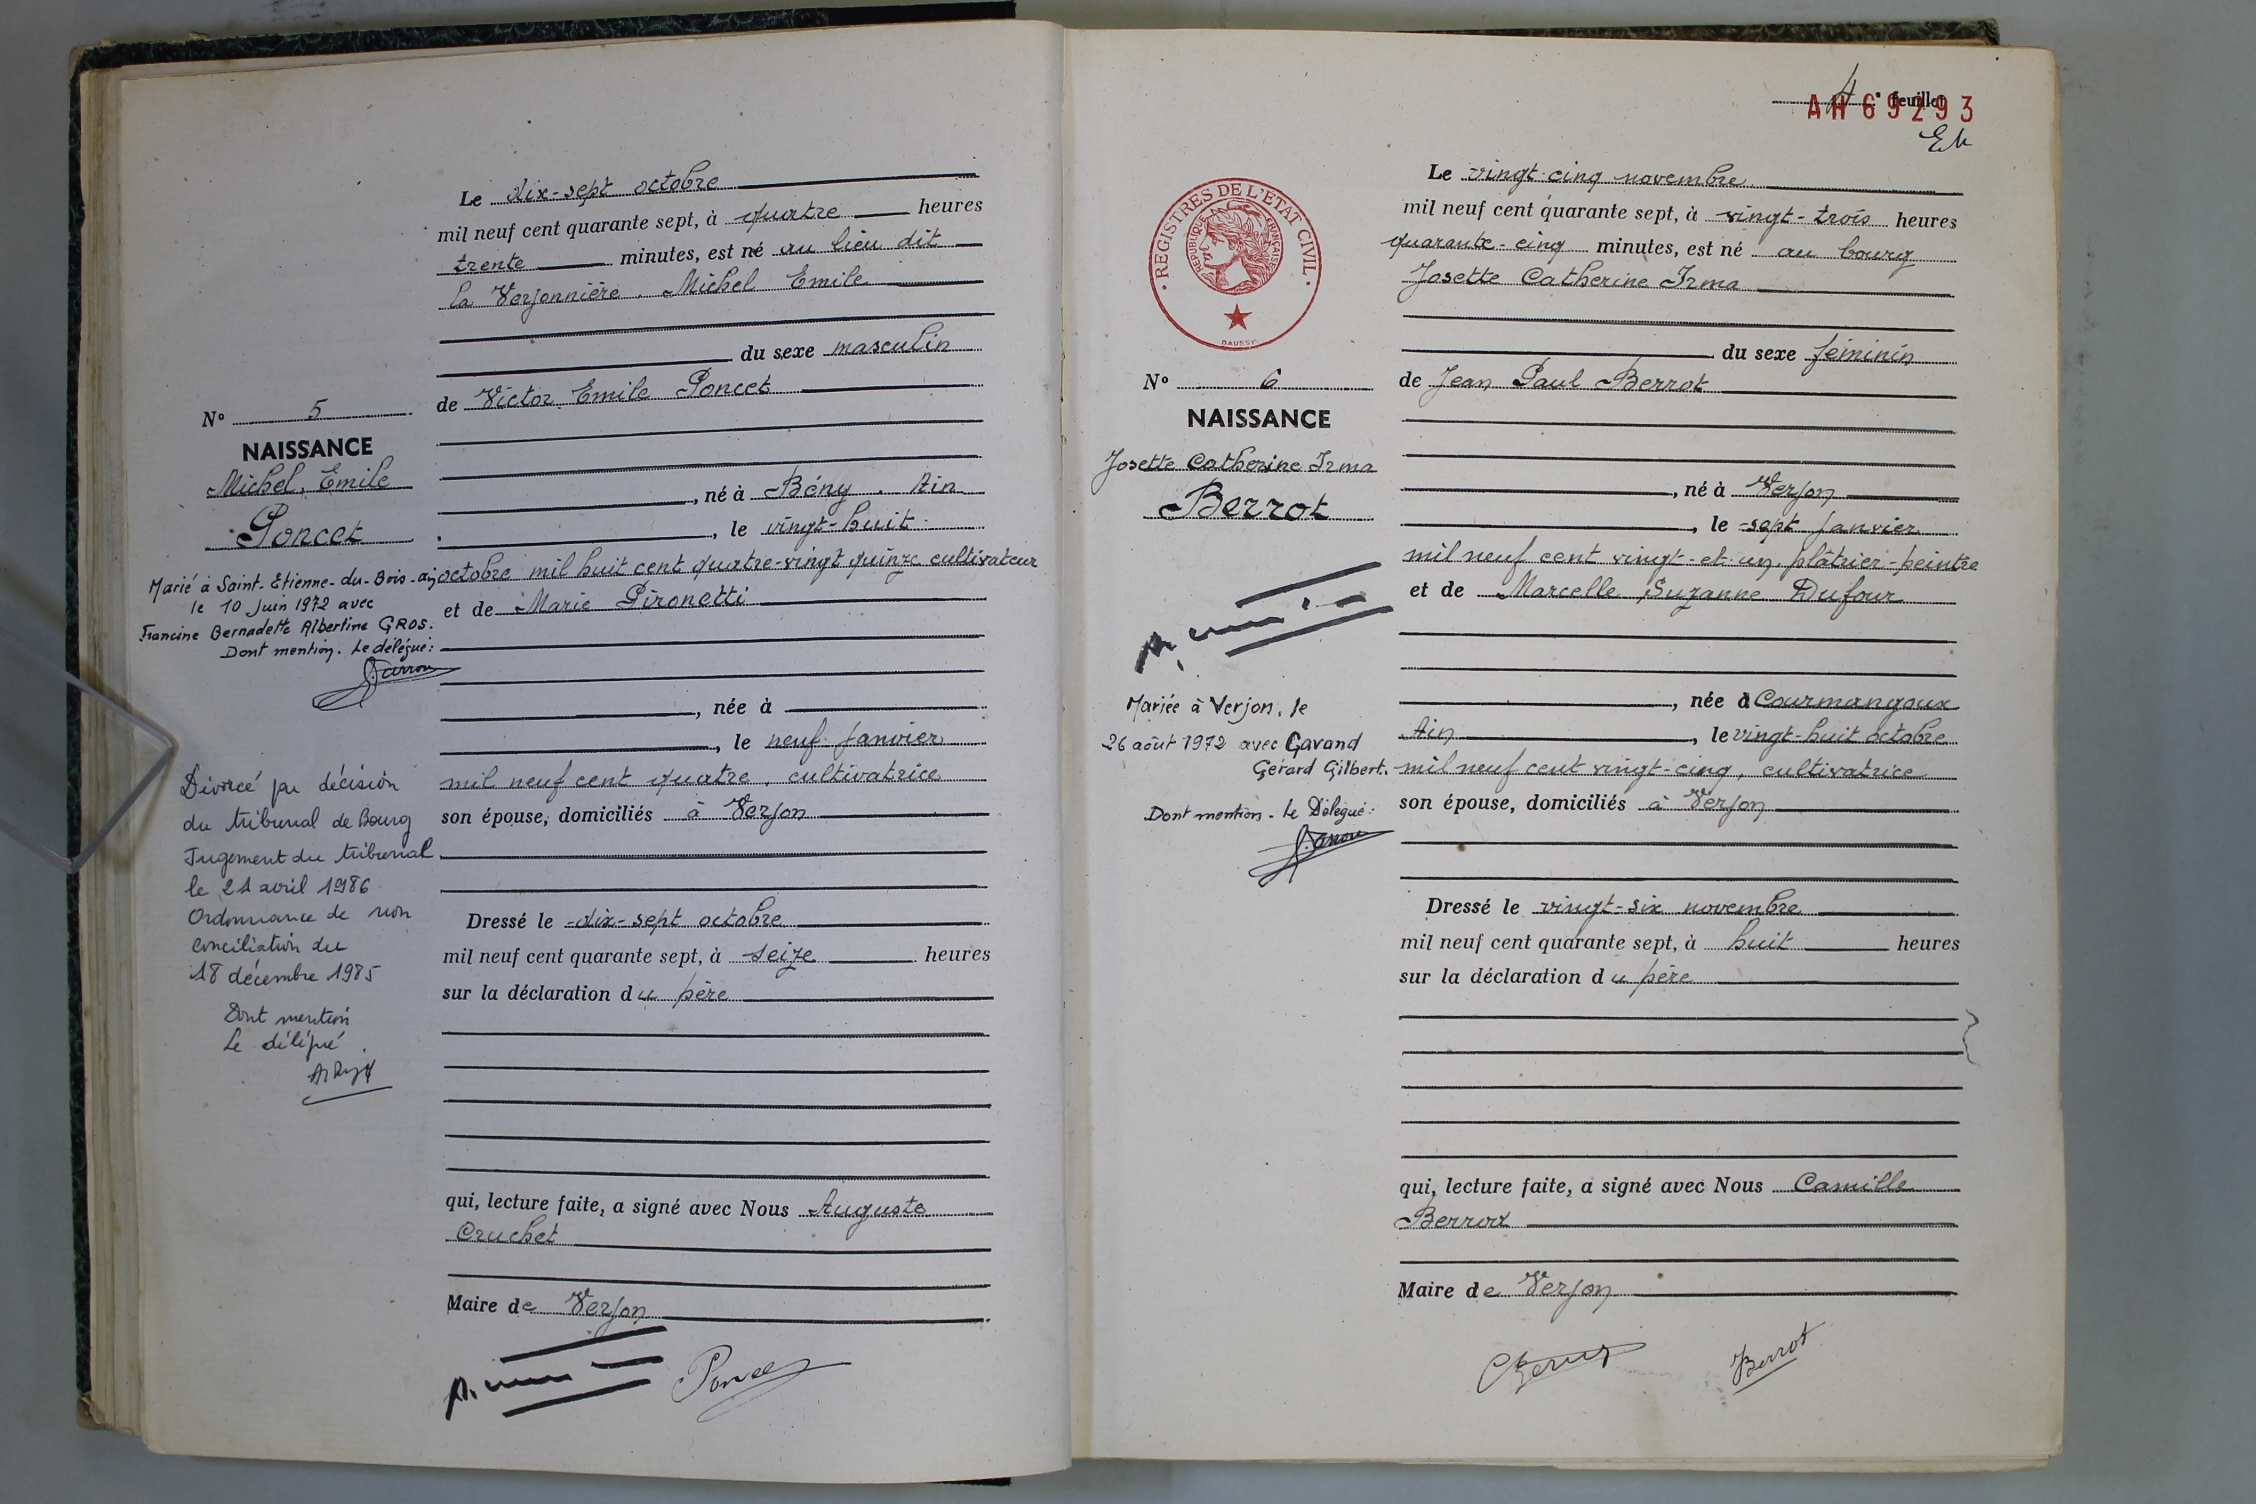 Le dix-sept octobre
mil neuf cent quarante sept, à quatre heures
trente minutes, est né au lieu dit
la Verjonnière. Michel Emile
du sexe masculin
de Victor Emile Poncet
, né à Bény. Ain
, le vingt-huit
octobre mil huit cent quatre-vingt quinze cultivateur
et de Marie Pironetti
, née à
, le neuf janvier
mil neuf cent quatre, cultivatrice
son épouse, domiciliés à Verjon
Dressé le dix-sept octobre
mil neuf cent quarante sept, à seize heures
sur la déclaration du père
qui, lecture faite, a signé avec Nous Auguste
Cruchet
Maire de Verjon
Poncet
N° 5
NAISSANCE
Michel, Emile
Poncet
Marié à Saint-Etienne-du-Bois-ain
le 10 Juin 1972 avec
Francine Bernadette Albertine GROS.
Dont mention. Le délégué:
Divorcé par décision
du tribunal de Bourg
Jugement du tribunal
le 21 avril 1986
Ordonnance de non
conciliation du
18 décembre 1985
Dont mention
Le délégué
4e feuillet
AH 69293
REGISTRES DE L'ETAT CIVIL
REPUBLIQUE FRANÇAISE
DAUSSY
Le vingt-cinq novembre
mil neuf cent quarante sept, à vingt-trois heures
quarante-cinq minutes, est né au bourg
Josette Catherine Irma
du sexe féminin
de Jean Paul Berrot
, né à Verjon
, le sept janvier
mil neuf cent vingt-et-un, plâtrier-peintre
et de Marcelle, Suzanne Dufour
, née à Courmangoux
Ain , le vingt-huit octobre
mil neuf cent vingt-cinq, cultivatrice
son épouse, domiciliés à Verjon
Dressé le vingt-six novembre
mil neuf cent quarante sept, à huit heures
sur la déclaration du père
qui, lecture faite, a signé avec Nous Camille
Maire de Verjon
Berrot
N° 6
NAISSANCE
Josette Catherine Irma
Berrot
Mariée à Verjon, le
26 août 1972 avec Gavand
Gérard Gilbert.
Dont mention. Le Délégué: